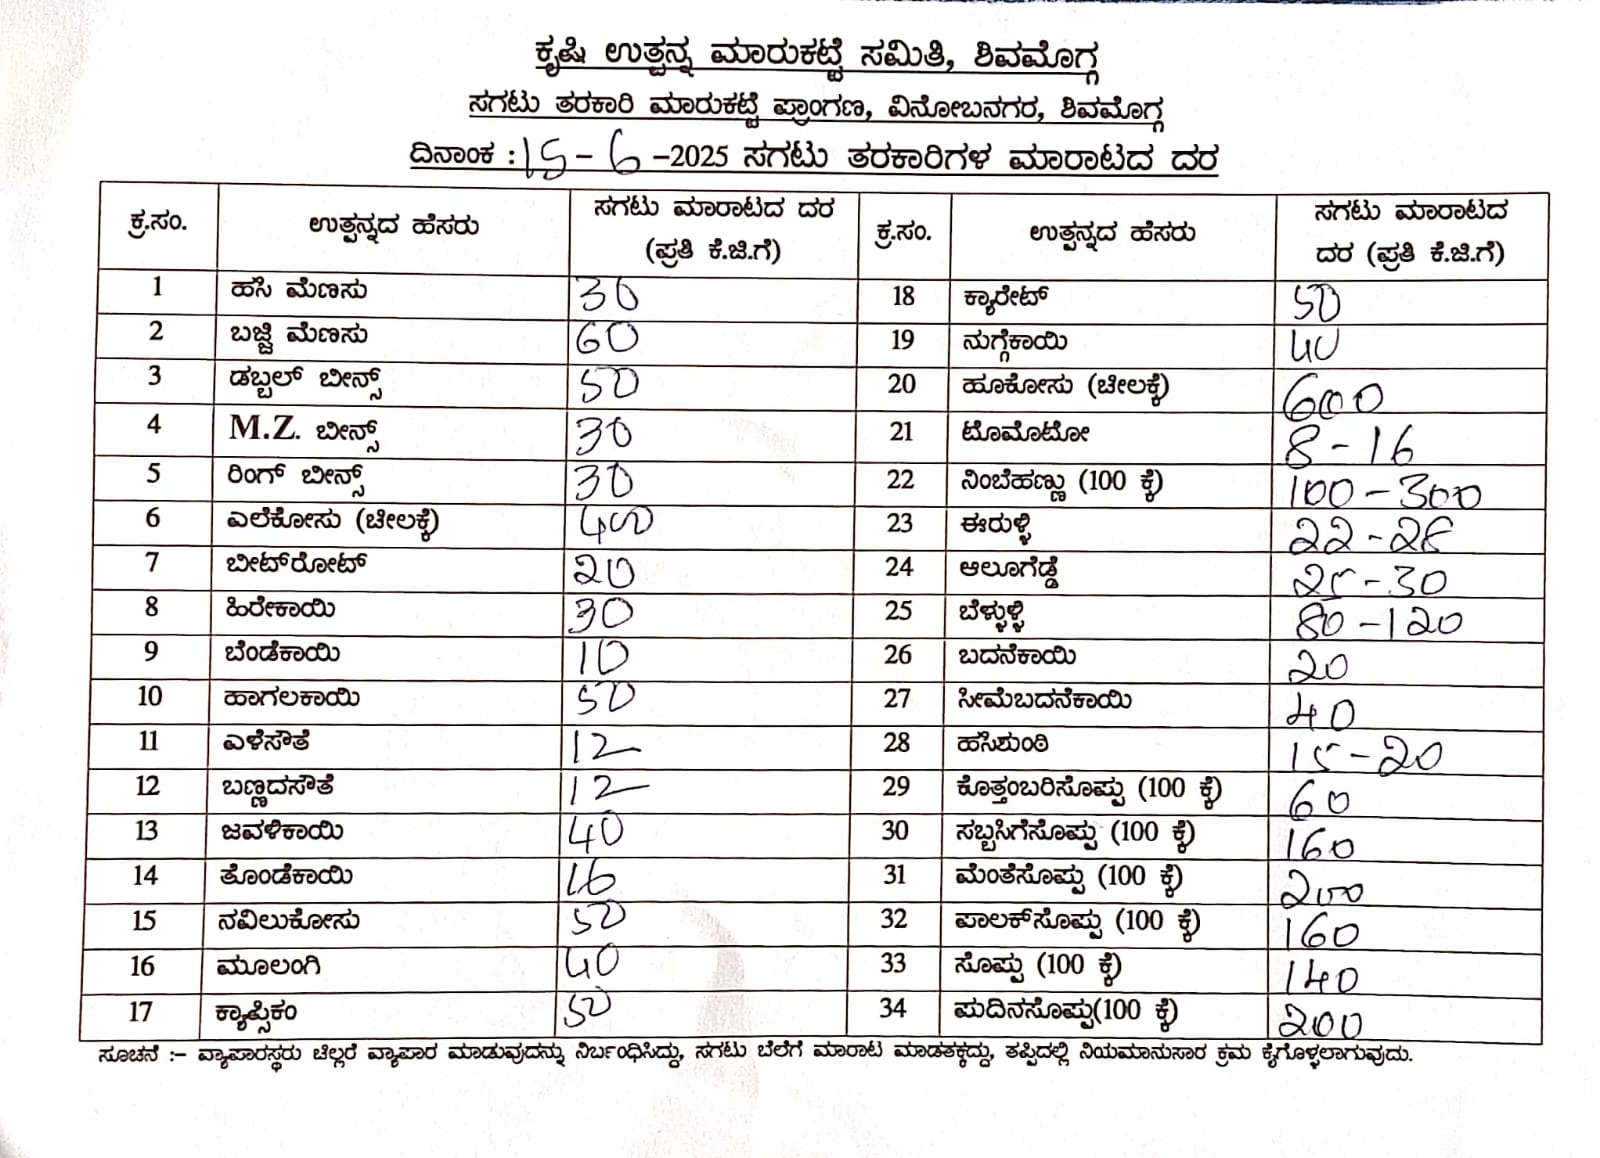 ಕೃಷಿ ಉತ್ಪನ್ನ ಮಾರುಕಟ್ಟೆ ಸಮಿತಿ, ಶಿವಮೊಗ್ಗ
ಸಗಟು ತರಕಾರಿ ಮಾರುಕಟ್ಟೆ ಪ್ರಾಂಗಣ, ವಿನೋಬನಗರ, ಶಿವಮೊಗ್ಗ
ದಿನಾಂಕ : 15-6-2025 ಸಗಟು ತರಕಾರಿಗಳ ಮಾರಾಟದ ದರ
ಕ್ರ.ಸಂ. ಉತ್ಪನ್ನದ ಹೆಸರು ಸಗಟು ಮಾರಾಟದ ದರ (ಪ್ರತಿ ಕೆ.ಜಿ.ಗೆ) ಕ್ರ.ಸಂ. ಉತ್ಪನ್ನದ ಹೆಸರು ಸಗಟು ಮಾರಾಟದ ದರ (ಪ್ರತಿ ಕೆ.ಜಿ.ಗೆ)
1 ಹಸಿ ಮೆಣಸು 30 18 ಕ್ಯಾರೇಟ್ 50
2 ಬಜ್ಜಿ ಮೆಣಸು 60 19 ನುಗ್ಗೆಕಾಯಿ 40
3 ಡಬ್ಬಲ್ ಬೀನ್ಸ್ 50 20 ಹೂಕೋಸು (ಚೀಲಕ್ಕೆ) 600
4 M.Z. ಬೀನ್ಸ್ 30 21 ಟೊಮೊಟೋ 8-16
5 ರಿಂಗ್ ಬೀನ್ಸ್ 30 22 ನಿಂಬೆಹಣ್ಣು (100 ಕ್ಕೆ) 100-300
6 ಎಲೆಕೋಸು (ಚೀಲಕ್ಕೆ) 400 23 ಈರುಳ್ಳಿ 22-28
7 ಬೀಟ್‌ರೋಟ್ 20 24 ಆಲೂಗೆಡ್ಡೆ 25-30
8 ಹಿರೇಕಾಯಿ 30 25 ಬೆಳ್ಳುಳ್ಳಿ 80-120
9 ಬೆಂಡೆಕಾಯಿ 10 26 ಬದನೆಕಾಯಿ 20
10 ಹಾಗಲಕಾಯಿ 50 27 ಸೀಮೆಬದನೆಕಾಯಿ 40
11 ಎಳೆಸೌತೆ 12 28 ಹಸಿಶುಂಠಿ 15-20
12 ಬಣ್ಣದಸೌತೆ 12 29 ಕೊತ್ತಂಬರಿಸೊಪ್ಪು (100 ಕ್ಕೆ) 60
13 ಜವಳಿಕಾಯಿ 40 30 ಸಬ್ಬಸಿಗೆಸೊಪ್ಪು (100 ಕ್ಕೆ) 160
14 ತೊಂಡೆಕಾಯಿ 16 31 ಮೆಂತೆಸೊಪ್ಪು (100 ಕ್ಕೆ) 200
15 ನವಿಲುಕೋಸು 50 32 ಪಾಲಕ್‌ಸೊಪ್ಪು (100 ಕ್ಕೆ) 160
16 ಮೂಲಂಗಿ 40 33 ಸೊಪ್ಪು (100 ಕ್ಕೆ) 140
17 ಕ್ಯಾಪ್ಸಿಕಂ 50 34 ಪುದಿನಸೊಪ್ಪು(100 ಕ್ಕೆ) 200
ಸೂಚನೆ :– ವ್ಯಾಪಾರಸ್ಥರು ಚಿಲ್ಲರೆ ವ್ಯಾಪಾರ ಮಾಡುವುದನ್ನು ನಿರ್ಬಂಧಿಸಿದ್ದು, ಸಗಟು ಬೆಲೆಗೆ ಮಾರಾಟ ಮಾಡತಕ್ಕದ್ದು, ತಪ್ಪಿದಲ್ಲಿ ನಿಯಮಾನುಸಾರ ಕ್ರಮ ಕೈಗೊಳ್ಳಲಾಗುವುದು.